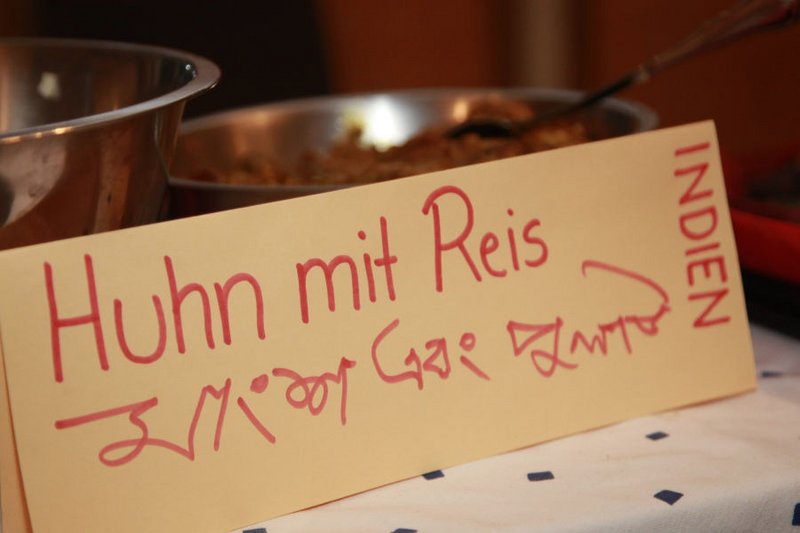 Huhn mit Reis
মাংস এবং পুলাউ
INDIEN